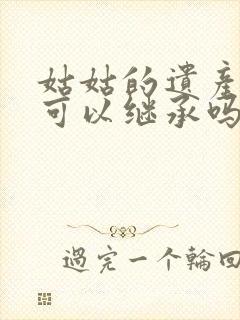 姑姑的遺産
可以继承吗
過完一个輪回